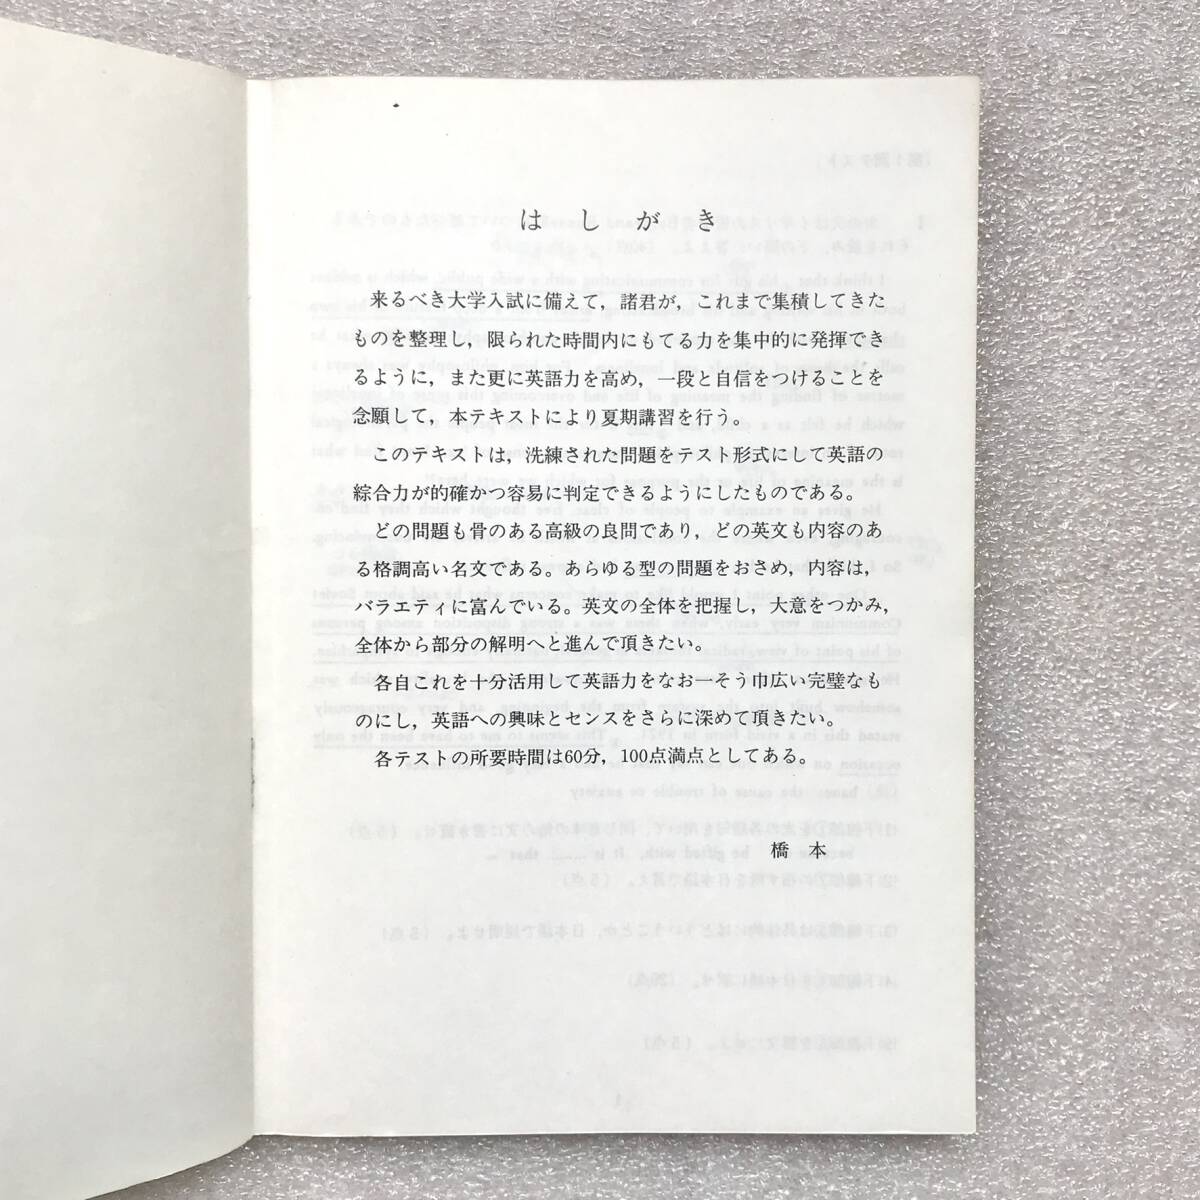 はしがき
来るべき大学入試に備えて，諸君が，これまで集積してきた
ものを整理し，限られた時間内にもてる力を集中的に発揮でき
るように，また更に英語力を高め，一段と自信をつけることを
念願して，本テキストにより夏期講習を行う。
このテキストは，洗練された問題をテスト形式にして英語の
綜合力が的確かつ容易に判定できるようにしたものである。
どの問題も骨のある高級の良問であり，どの英文も内容のあ
る格調高い名文である。あらゆる型の問題をおさめ，内容は，
バラエティに富んでいる。英文の全体を把握し，大意をつかみ，
全体から部分の解明へと進んで頂きたい。
各自これを十分活用して英語力をなお一そう巾広い完璧なも
のにし，英語への興味とセンスをさらに深めて頂きたい。
各テストの所要時間は60分，100点満点としてある。
橋本